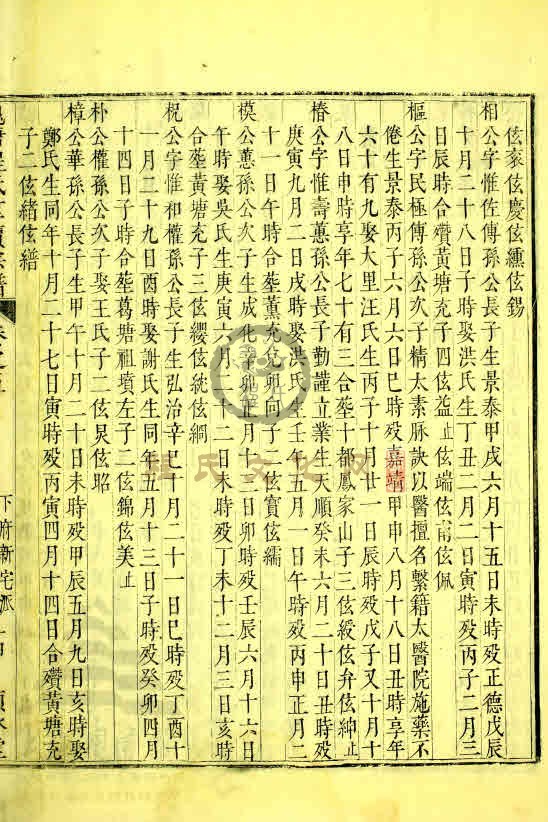 伭袞伭慶伭纁伭錫
相公字惟佐傳孫公長子生景泰甲戌六月十五日未時殁正德戊辰
十月二十八日子時娶洪氏生丁丑二月二日寅時殁丙子二月三
日辰時合殯黃塘充子四伭益止伭端伭甯伭佩
樞公字民極傳孫公次子精太素脉訣以醫擅名繫籍太醫院施藥不
倦生景泰丙子六月六日巳時殁嘉靖甲申八月十八日丑時享年
六十有九娶大里汪氏生丙子十月廿一日辰時殁戊子又十月十
八日申時享年七十有三合塟十都鳳家山子三伭綬伭弁伭紳止
椿公字惟壽蕙孫公長子勤謹立業生天順癸未六月二十日丑時殁
庚寅九月二日戌時娶洪氏生壬午五月一日午時殁丙申正月二
十一日午時合塟薰充允兌卯向子二伭寳伭繻
模公蕙孫公次子生成化辛卯十月十三日卯時殁壬辰六月十六日
午時娶吳氏生庚寅六月二十二日未時殁丁未十二月三日亥時
合塟黃塘充子三伭纓伭統伭綱
柷公字惟和權孫公長子生弘治辛巳十月二十一日巳時殁丁酉十
一月二十九日酉時娶謝氏生同年五月十三日子時殁癸卯四月
十四日子時合塟葛塘祖墳左子二伭錦伭美止
朴公權孫公次子娶王氏子二伭炅伭昭
樟公華孫公長子生甲午十月二十日未時殁甲辰五月九日亥時娶
鄭氏生同年十月二十七日寅時殁丙寅四月十四日合殯黃塘充
子二伭緒伭繕
下府新宅派